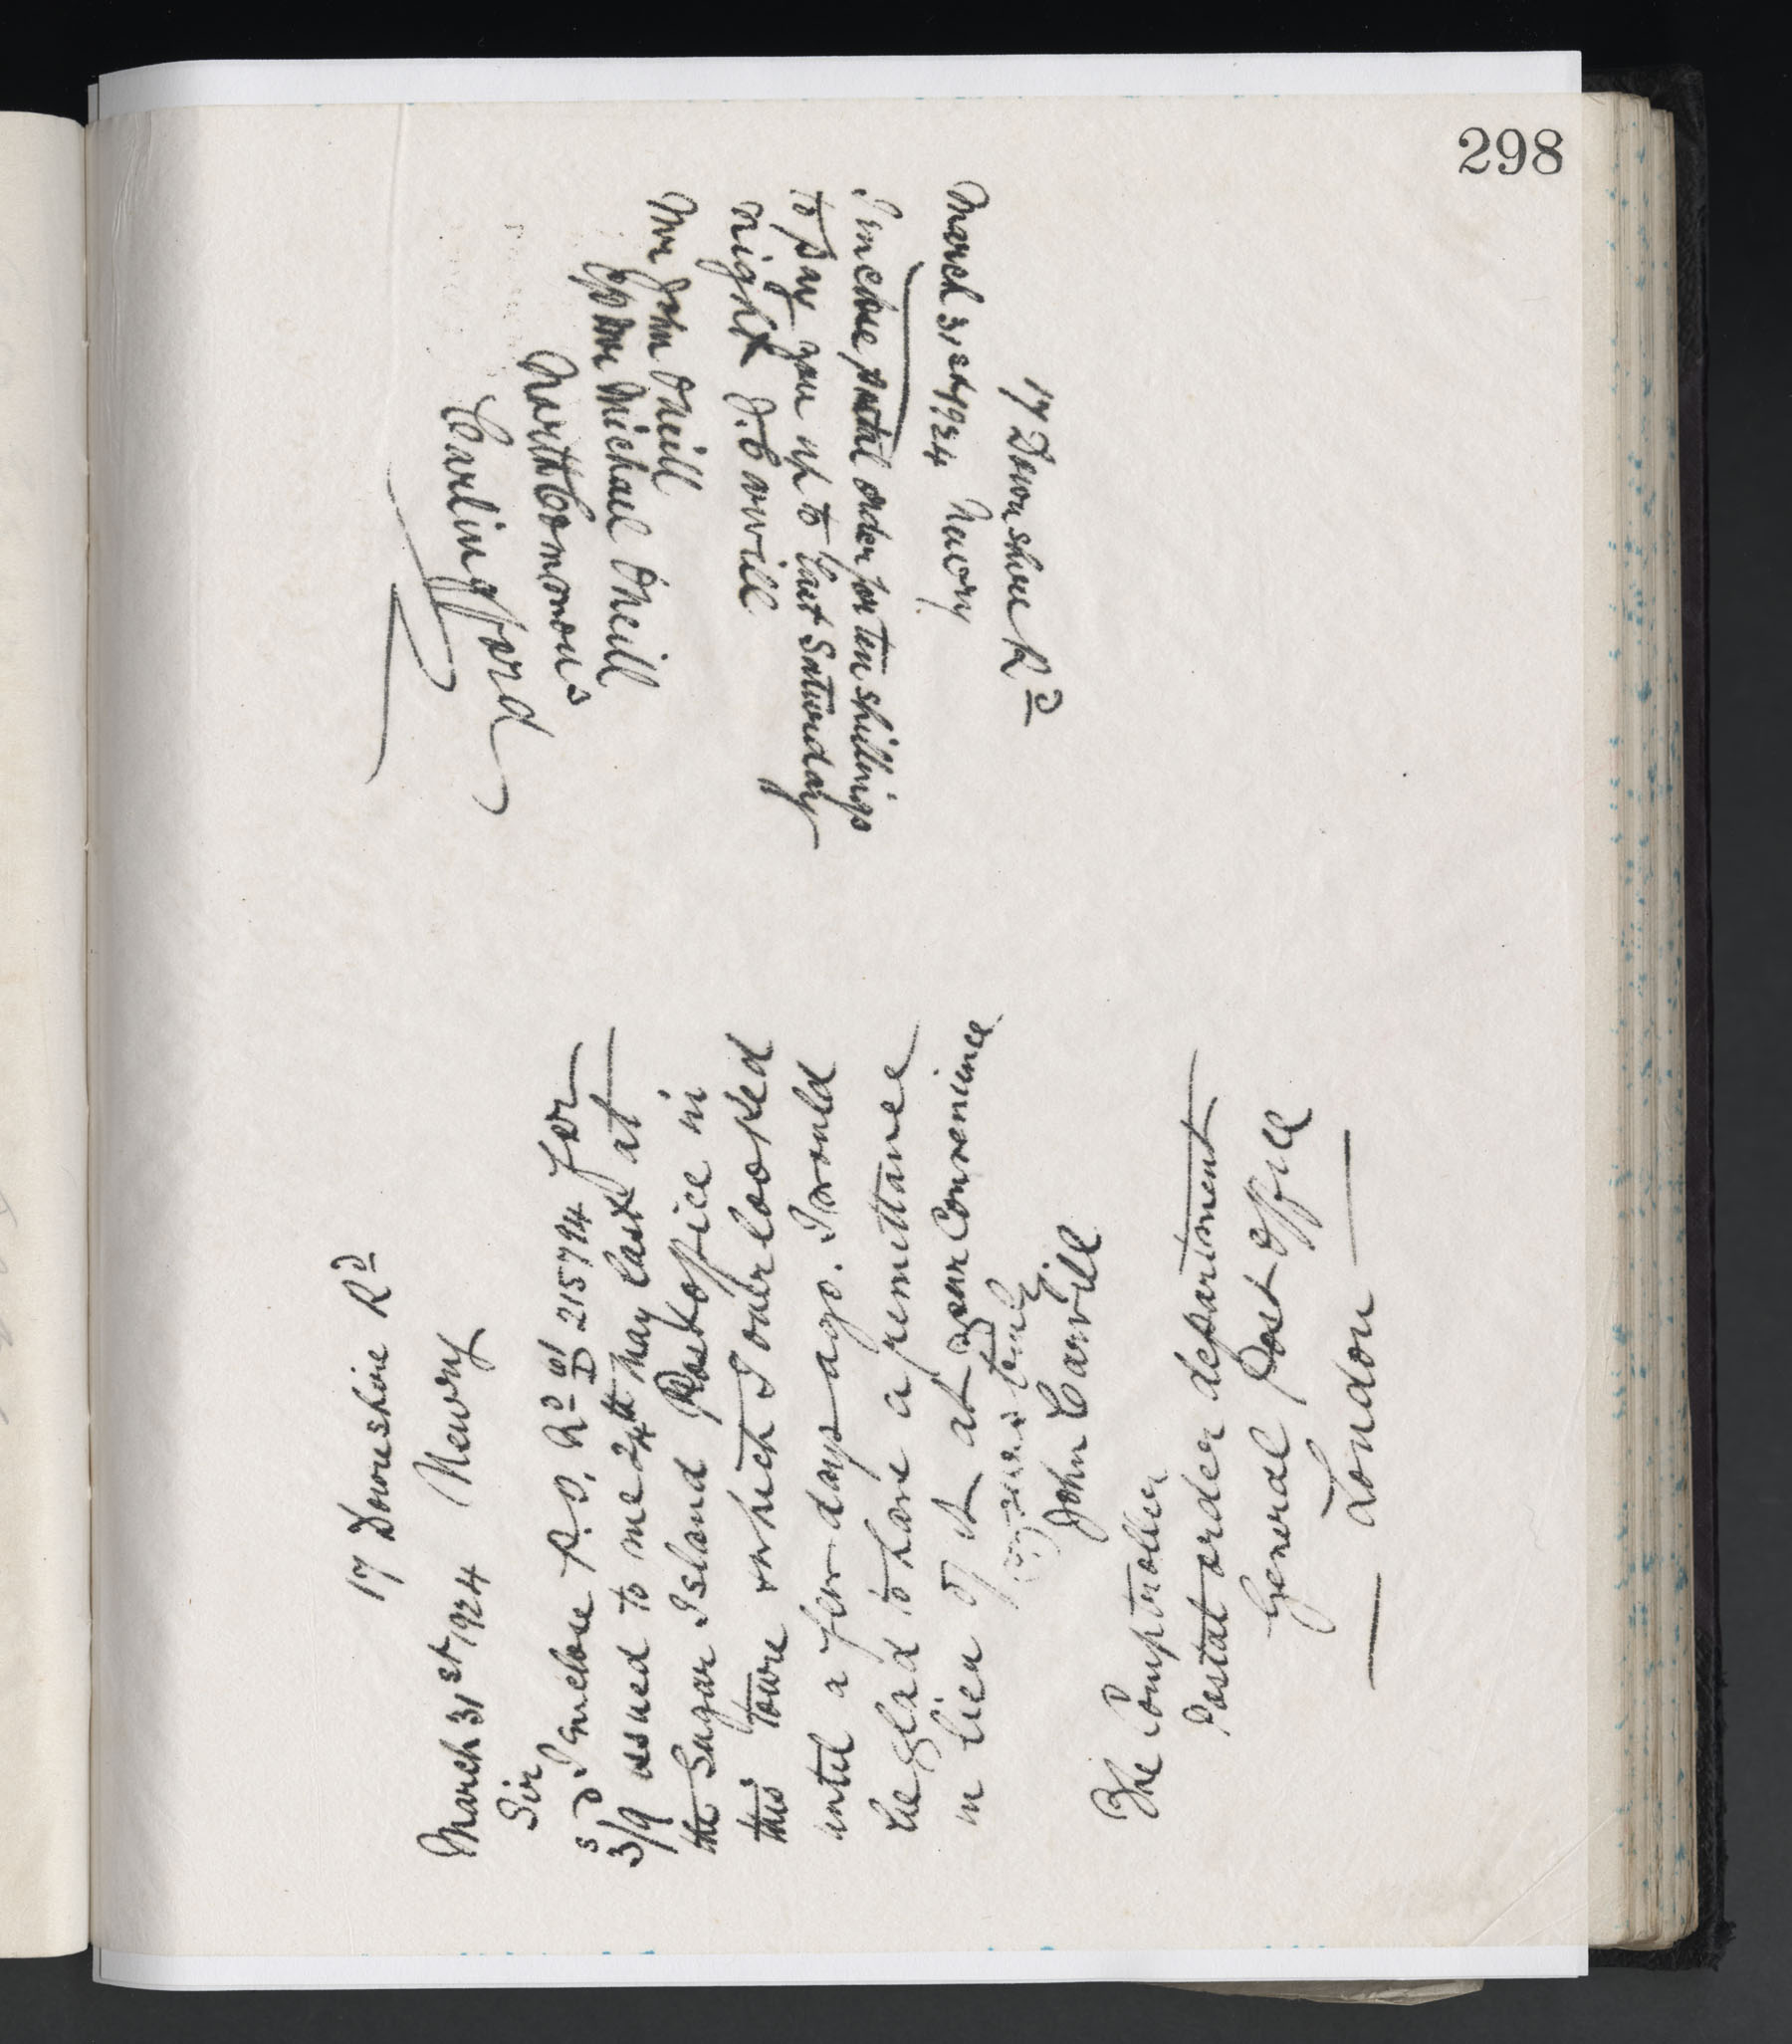 298
17 Downshire Rd
March 31st 1924 Newry
I inclose postal order for ten shillings
to pay you up to last Saturday
night J. Carvill
Mr John Oneill
c/o Mr Michael Oneill
North Commons
Carlingford
17 Downshire Rd
March 31st 1924 Newry
Sir
I enclose P.O. No 215794 for
3s/9d issued to me 24th May last at
the Sugar Island Post office in
this town which I overlooked
until a few days ago. I would
be glad to have a remittance
in lieu of it at your convenience
John Carvill
The Comptroller
Postal order department
General Post Office
London